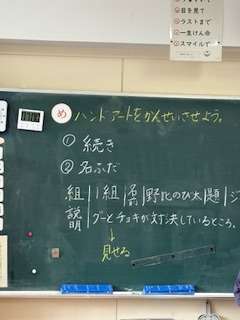 目を見て
ラストまで
一生けん命
スマイルで
め ハンドアートをかんせいさせよう。
① 続き
② 名ふだ
組 | 1組 | 名前 | 野比のび太 | 題 | ジ
説明 | グーとチョキが対決しているところ。
↓
見せる